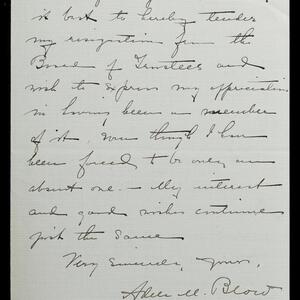 it best to hereby tender
my resignation from the
Board of Trustees and
wish to express my appreciation
in having been a member
of it, even though I have
been forced to be only an
absent one — My interest
and good wishes continue
just the same
Very Sincerely, yours,
Adele M. Blow